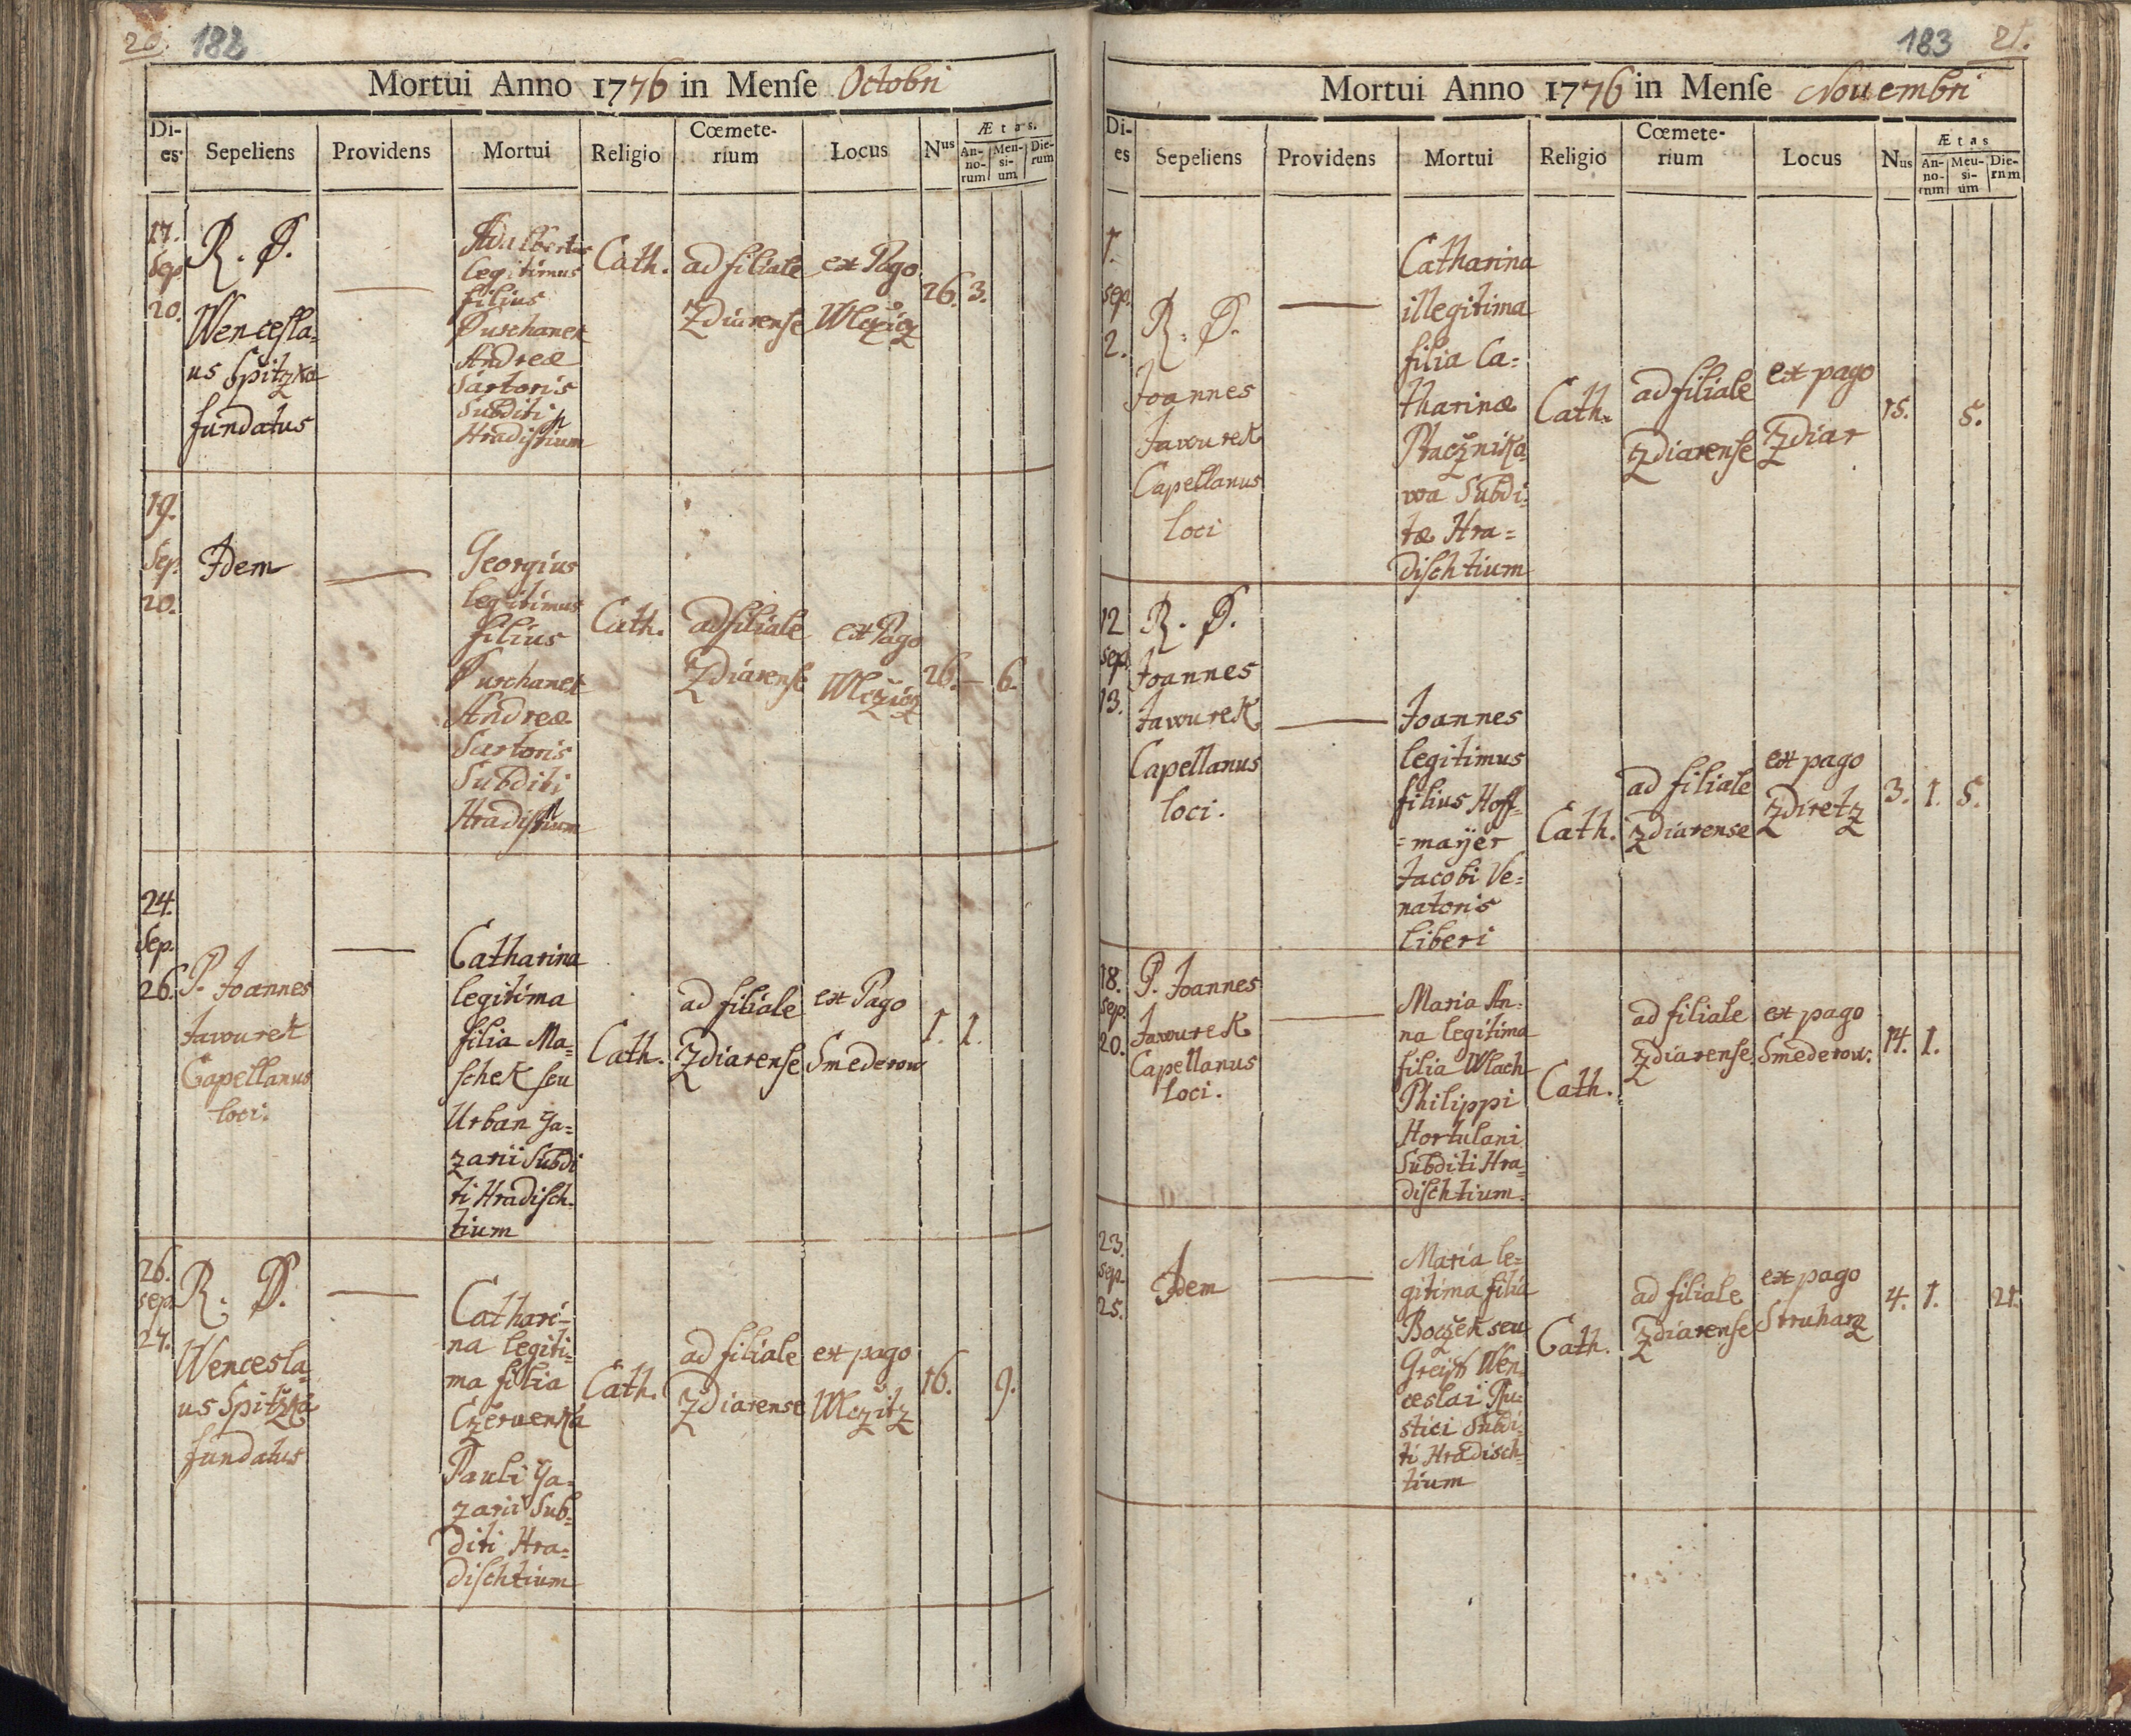 20. 182
Mortui Anno 1776 in Menſe Octobri
Di-es. Sepeliens Providens Mortui Religio Cœmete-rium Locus Nus Ætas. An-no-rum Men-si-um Die-rum
17.
Sep.
20.
R. D.
Wenceſla=
us Spitzka
fundatus
Adalbertus
legitimus
filius
Duschanek
Andreæ
Sartoris
Subditi
Hradiſtium
Cath.
ad filiale
Zdiarenſe
ex Pago
Wlcžicz
26. 3.
19.
Sep.
20.
Idem
Georgius
legitimus
filius
Duschanek
Andreæ
Sartoris
Subditi
Hradiſtium
Cath.
ad filiale
Zdiarenſe
ex Pago
Wlcžicz
26. — 6.
24.
Sep.
26.
P. Joannes
Jawurek
Capellanus
loci.
Catharina
legitima
filia Ma=
ſchek ſeu
Urban Ga=
zarii Subdi
ti Hradiſch=
tium
Cath.
ad filiale
Zdiarenſe
ex Pago
Smederow
1. 1.
26.
sep.
27.
R. D.
Wencesla=
us Spitžka
fundatus
Cathari=
na legiti=
ma filia
Czervenka
Pauli Ga=
zarii Sub=
diti Hra=
diſchtium
Cath.
ad filiale
Zdiarense
ex pago
Wlcžitz
16. 9.
183 21.
Mortui Anno 1776 in Menſe Novembri
Di-es Sepeliens Providens Mortui Religio Cœmete-rium Locus Nus Ætas An-no-rnm Meu-si-ùm Die-rnm
1.
sep.
2.
R. D.
Joannes
Jawurek
Capellanus
loci
Catharina
illegitima
filia Ca=
tharinæ
Ptacžnika
wa Subdi=
tæ Hra=
diſchtium
Cath.
ad filiale
Zdiarenſe
ex pago
Zdiar
15. 5.
12
sep.
13.
R. D.
Joannes
Jawurek
Capellanus
loci.
Joannes
legitimus
filius Hoff=
=maÿer
Jacobi Ve=
natoris
liberi
Cath.
ad filiale
Zdiarense
ex pago
Zdiretz
3. 1. 5.
18.
sep.
20.
P. Joannes
Jawurek
Capellanus
loci.
Maria An=
na legitima
filia Wlach
Philippi
Hortulani
Subditi Hra=
diſchtium.
Cath.
ad filiale
Zdiarenſe.
ex pago
Smederow.
14. 1.
23.
sep.
25.
Idem
Maria le=
gitima filia
Boczek seu
Wen=
ceslai Ru=
stici Subdi=
ti Hradisch=
tium
Cath.
ad filiale
Zdiarenſe
ex pago
Struharz
4. 1. 21.